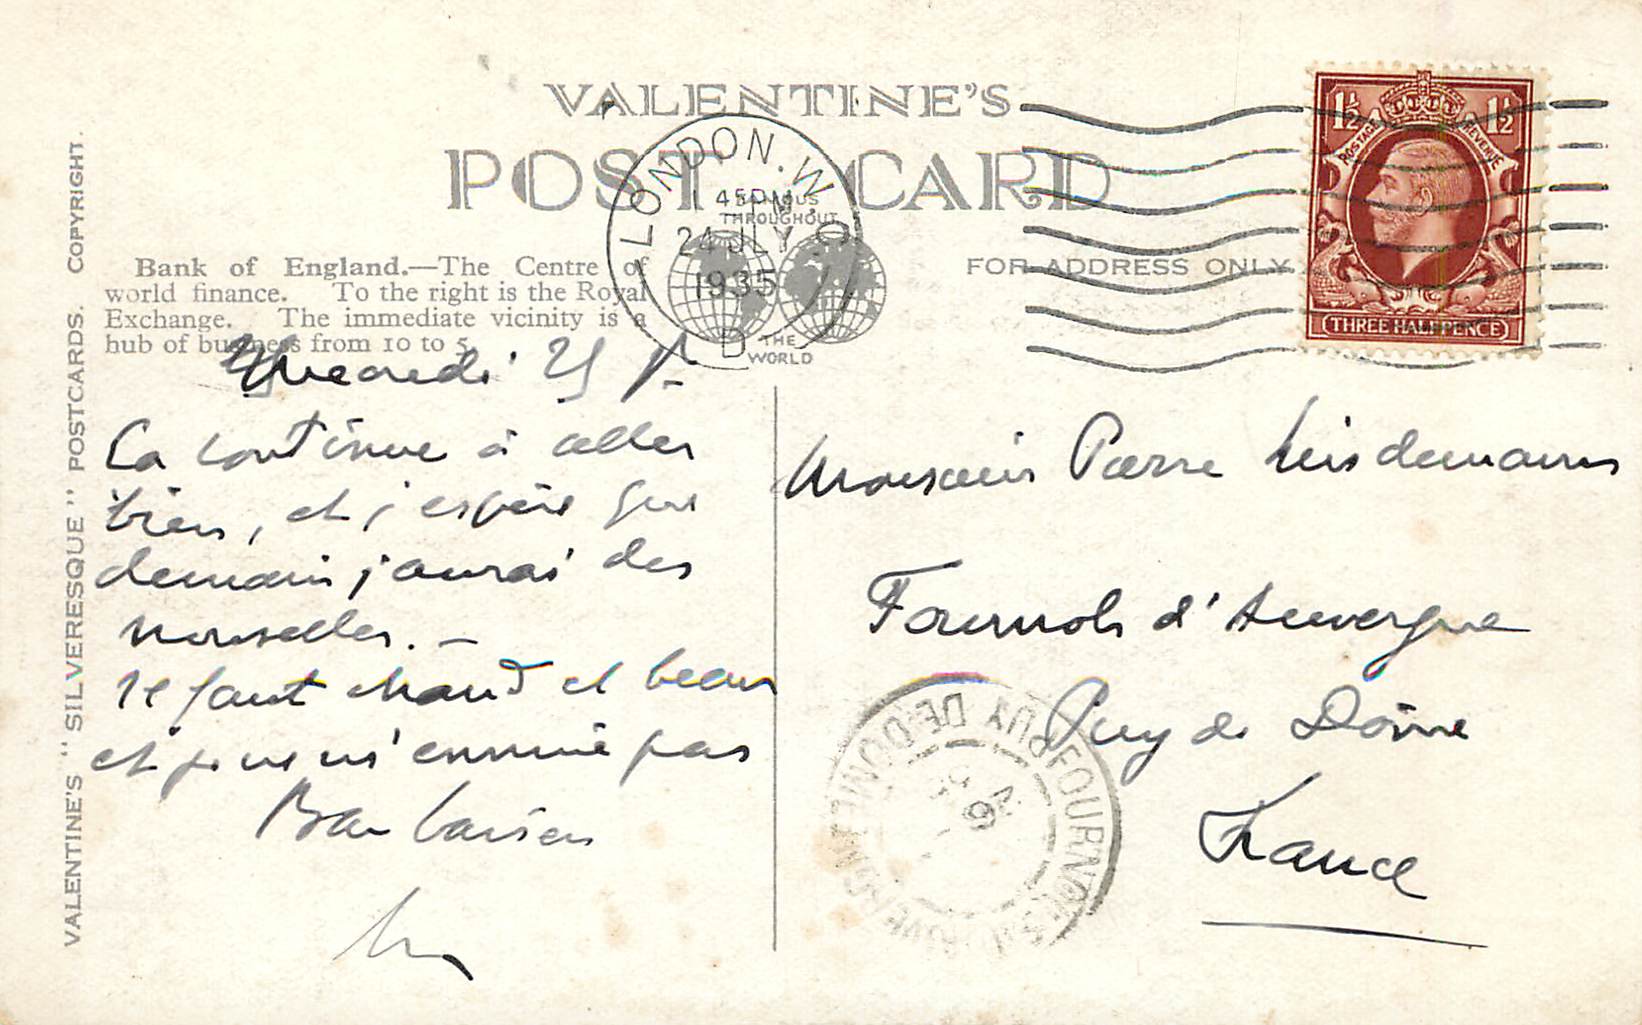 VALENTINE'S
POST CARD
FAMOUS
THROUGHOUT
THE
WORLD
LONDON. W.
1 45 PM
24 JLY
1935
D
1½ 1½
POSTAGE REVENUE
THREE HALFPENCE
VALENTINE'S "SILVERESQUE" POSTCARDS. COPYRIGHT.
Bank of England.—The Centre of
world finance. To the right is the Royal
Exchange. The immediate vicinity is a
hub of business from 10 to 5.
FOR ADDRESS ONLY
Mercredi
Ca continue à aller
bien, et j'espère que
demain j'aurai des
nouvelles. —
Il fait chaud et beau
et je ne m'ennuie pas
Bon baiser
Monsieur Pierre
Fournols d'Auvergne
Puy de Dôme
France
FOURNOLS
PUY DE DOME